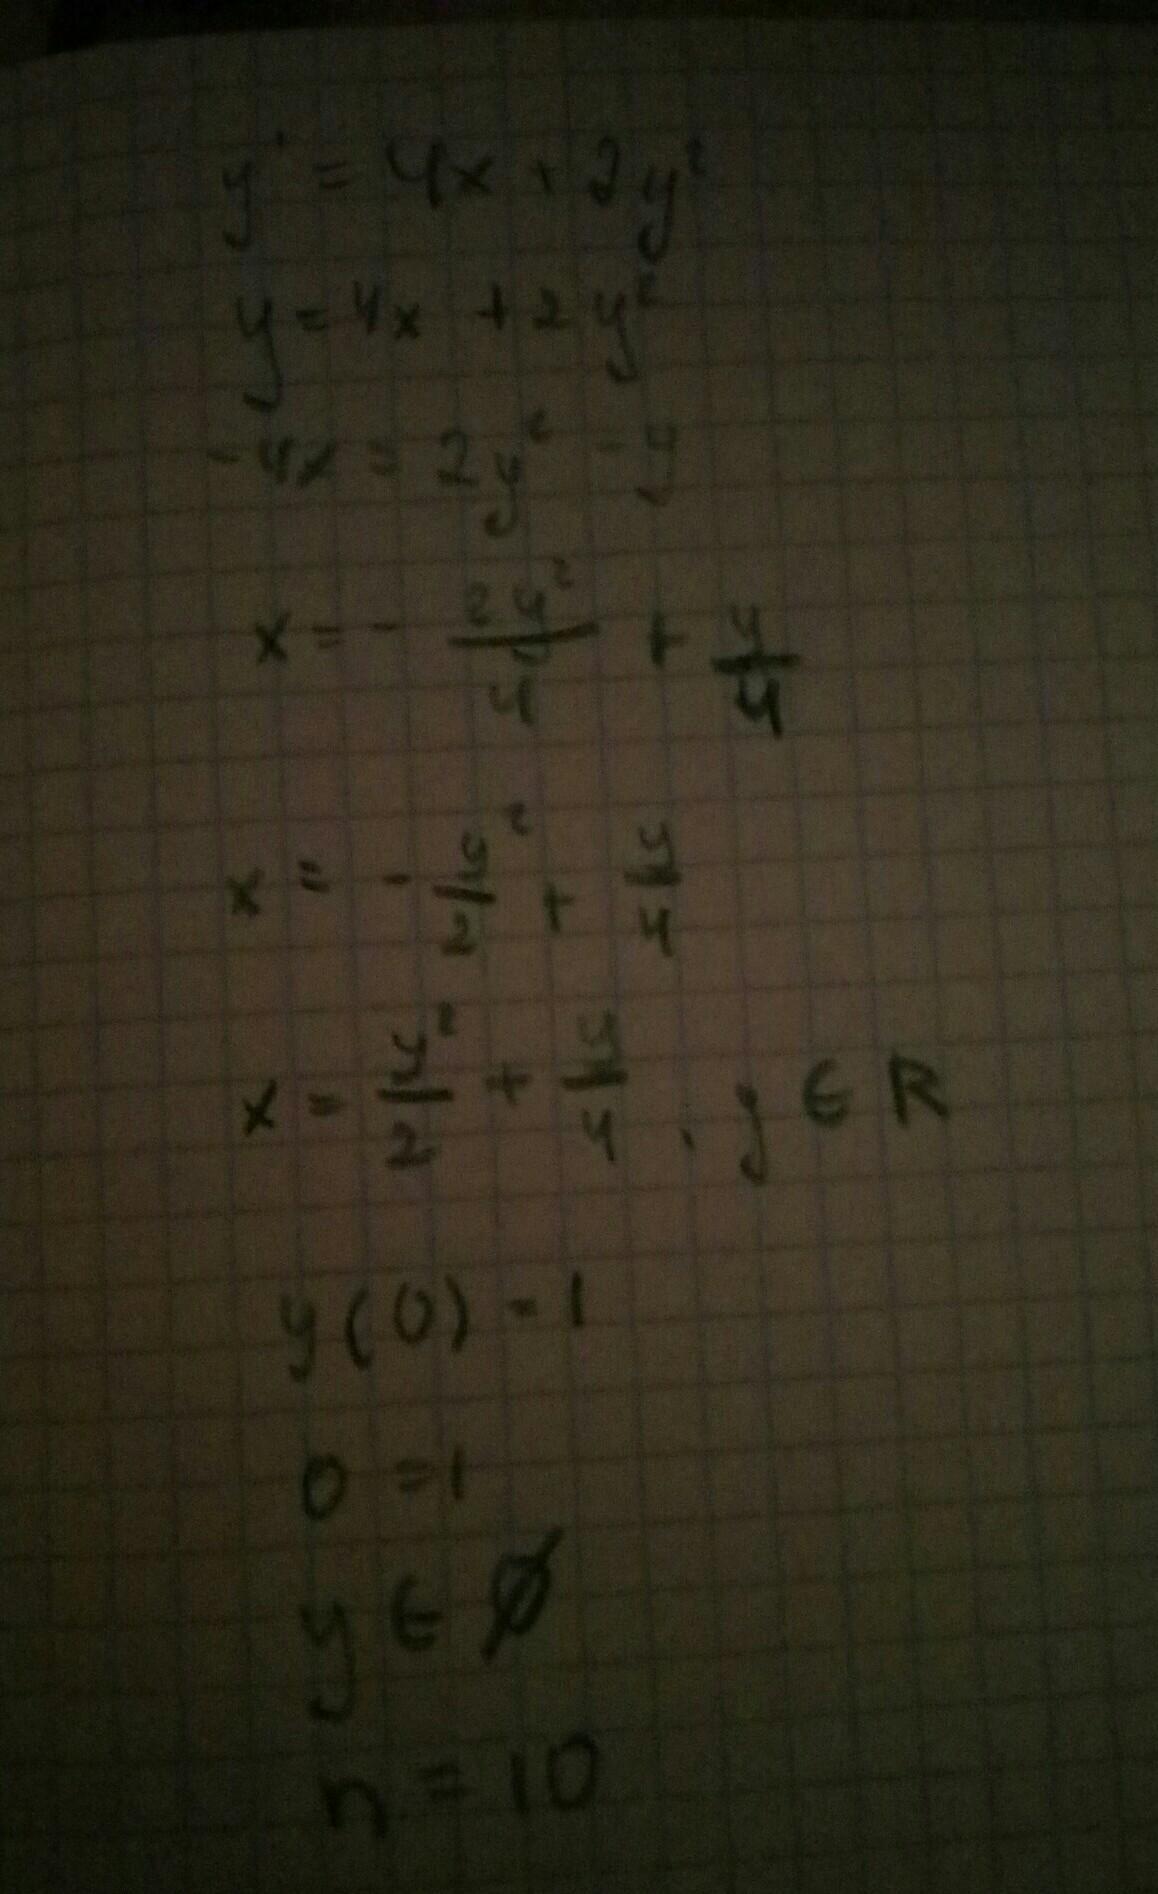 y' = 4x + 2y²
y = 4x + 2y²
-4x = 2y² - y
x = - 2y²/4 + y/4
x = - y²/2 + y/4
x = y²/2 + y/4, y ∈ R
y(0) = 1
0 = 1
y ∈ ∅
n = 10